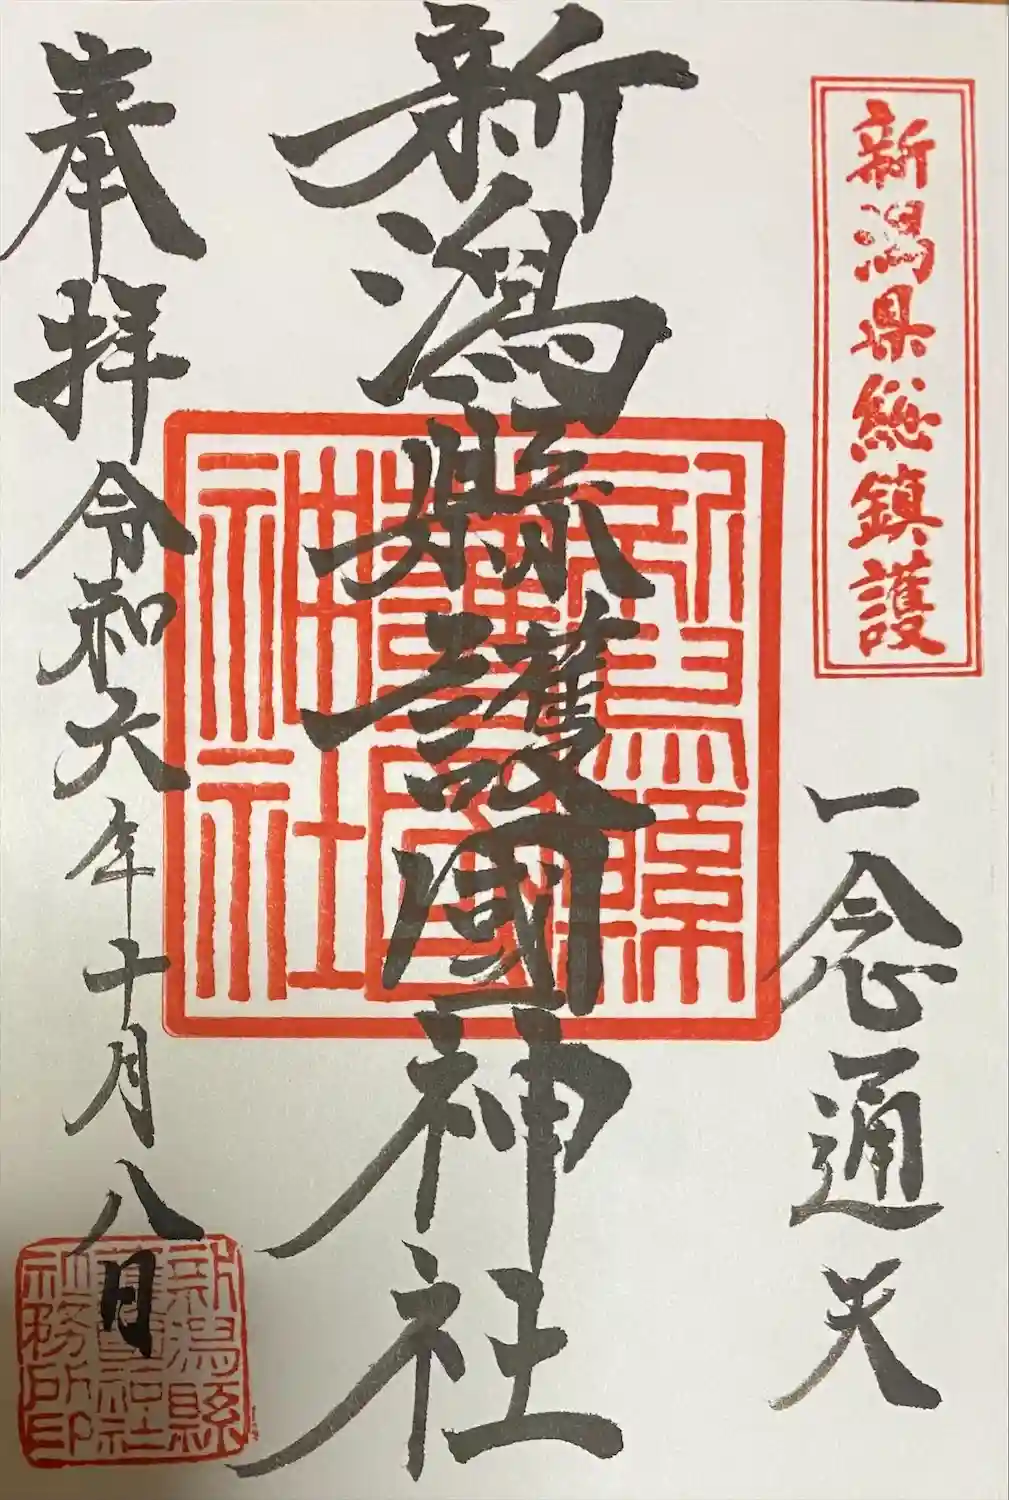 新潟県総鎮護
一念通天
新潟縣護國神社
新潟縣護國神社
奉拝
令和六年十月八日
新潟縣
護國神社
社務所印